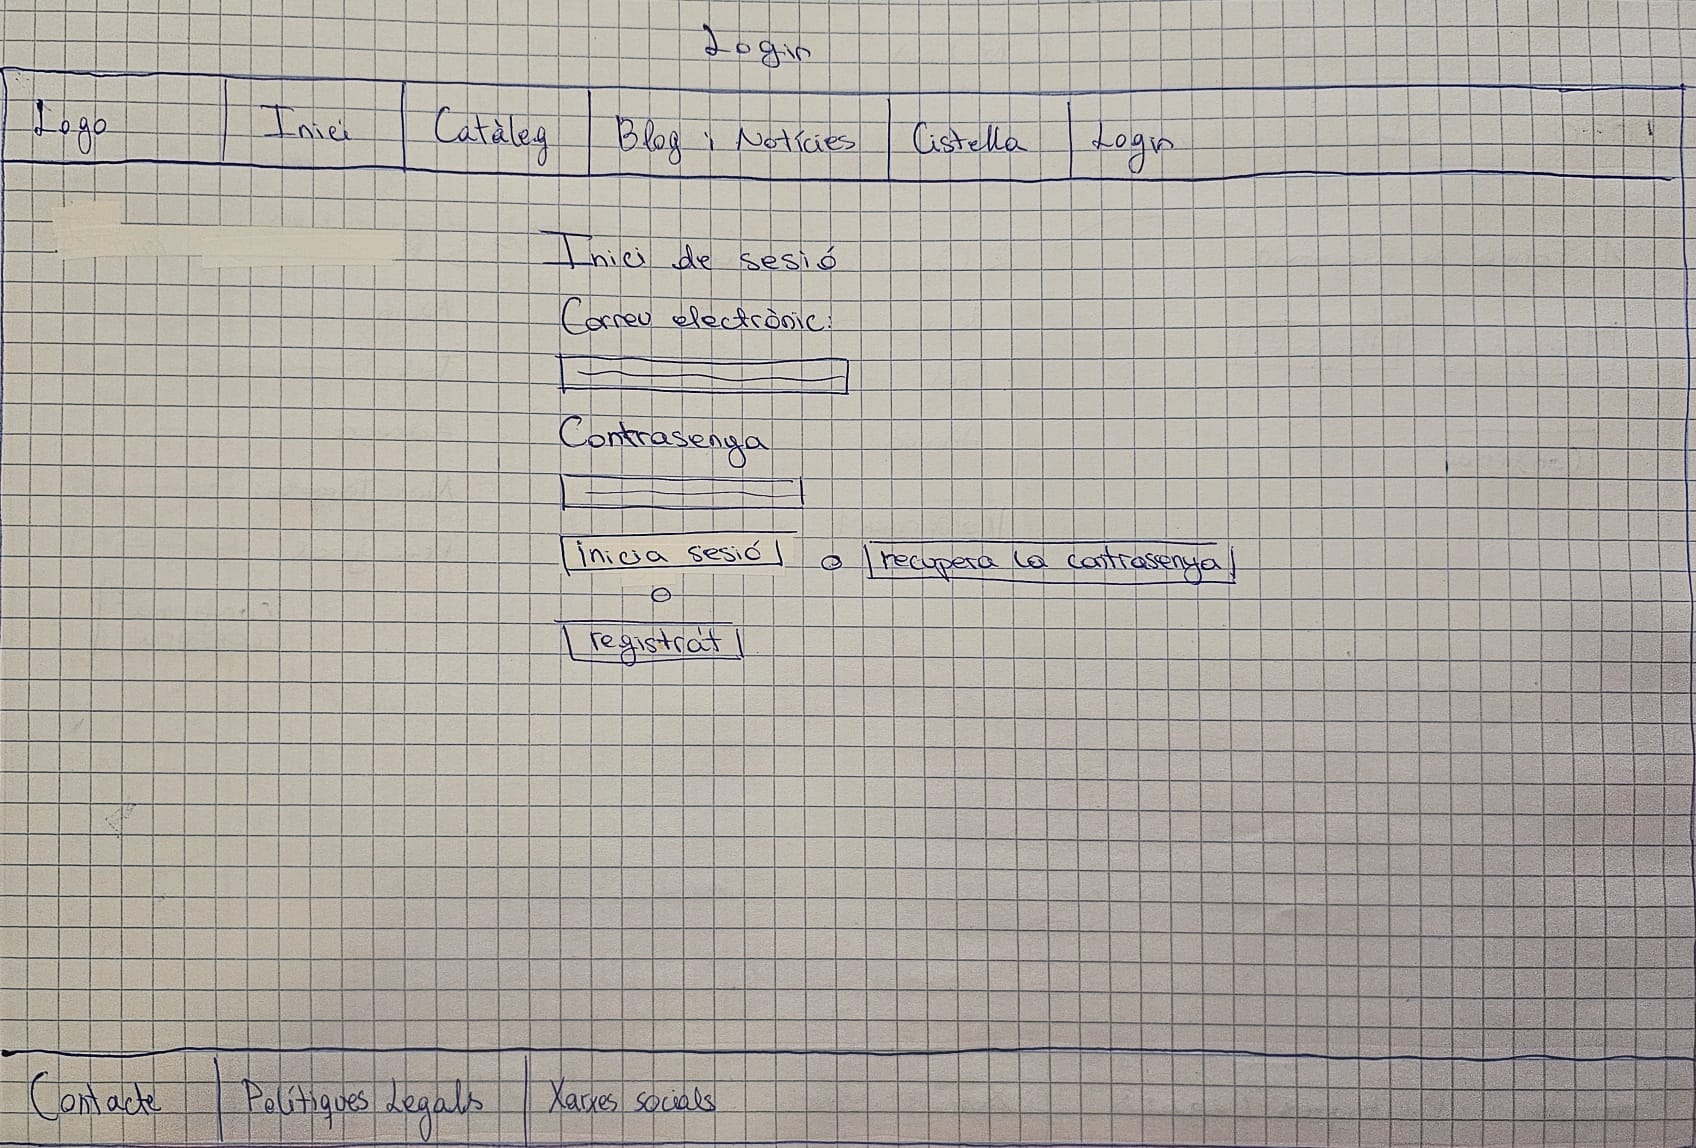 Login
Logo Inici Catàleg Blog i Notícies Cistella Login
Inici de sesió
Correu electrònic:
Contrasenga
inicia sesió o recupera la contrasenya
o
registra't
Contacte Polítiques Legals Xarxes socials